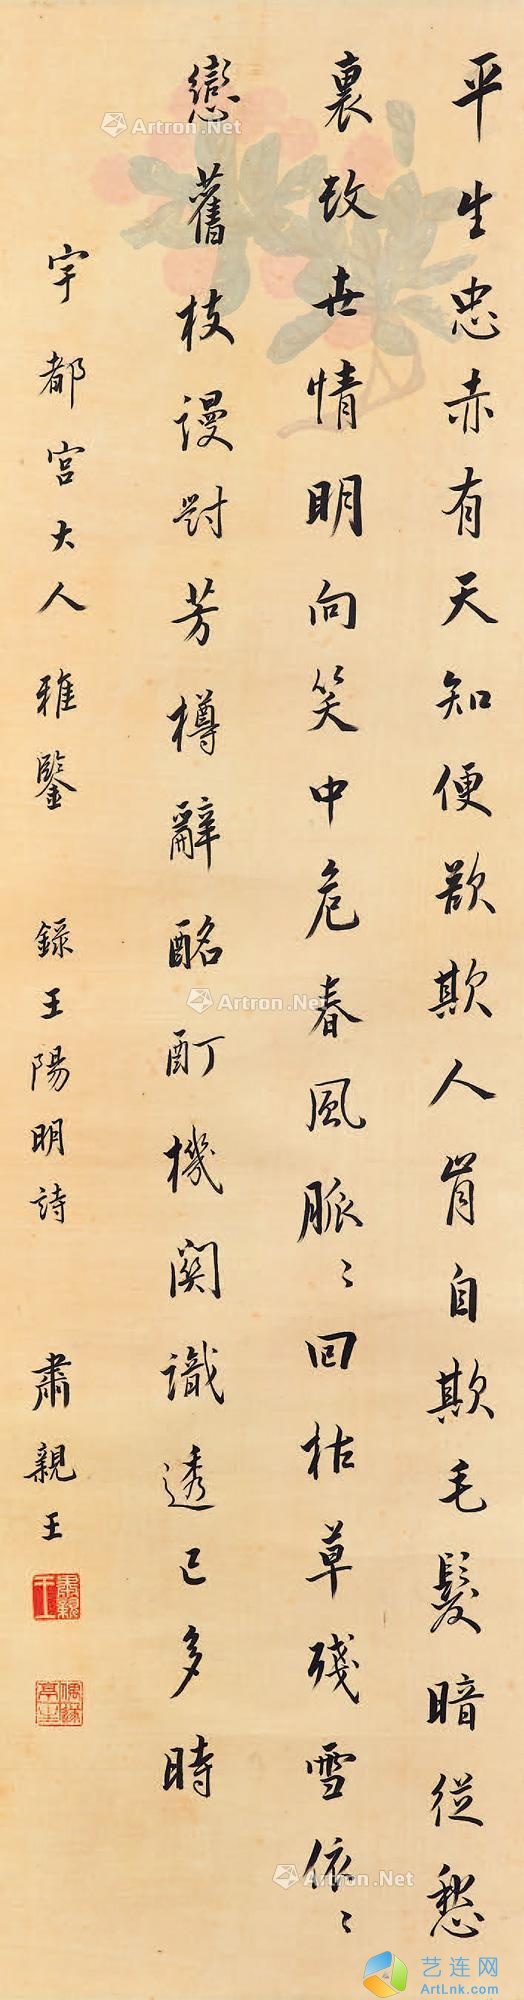 平生忠赤有天知便欲欺人肯自欺毛髮暗從愁
裏改世情明向笑中危春風脈〻回枯草殘雪依〻
戀舊枝謾對芳樽辭酩酊機關識透已多時
宇都宮大人 雅鑒 錄王陽明詩 肅親王
肅親王
Artron.Net
Artron.Net
Artron.Net
Artron.Net
Artron.Net
Artron.Net
艺连网
ArtLnk.com